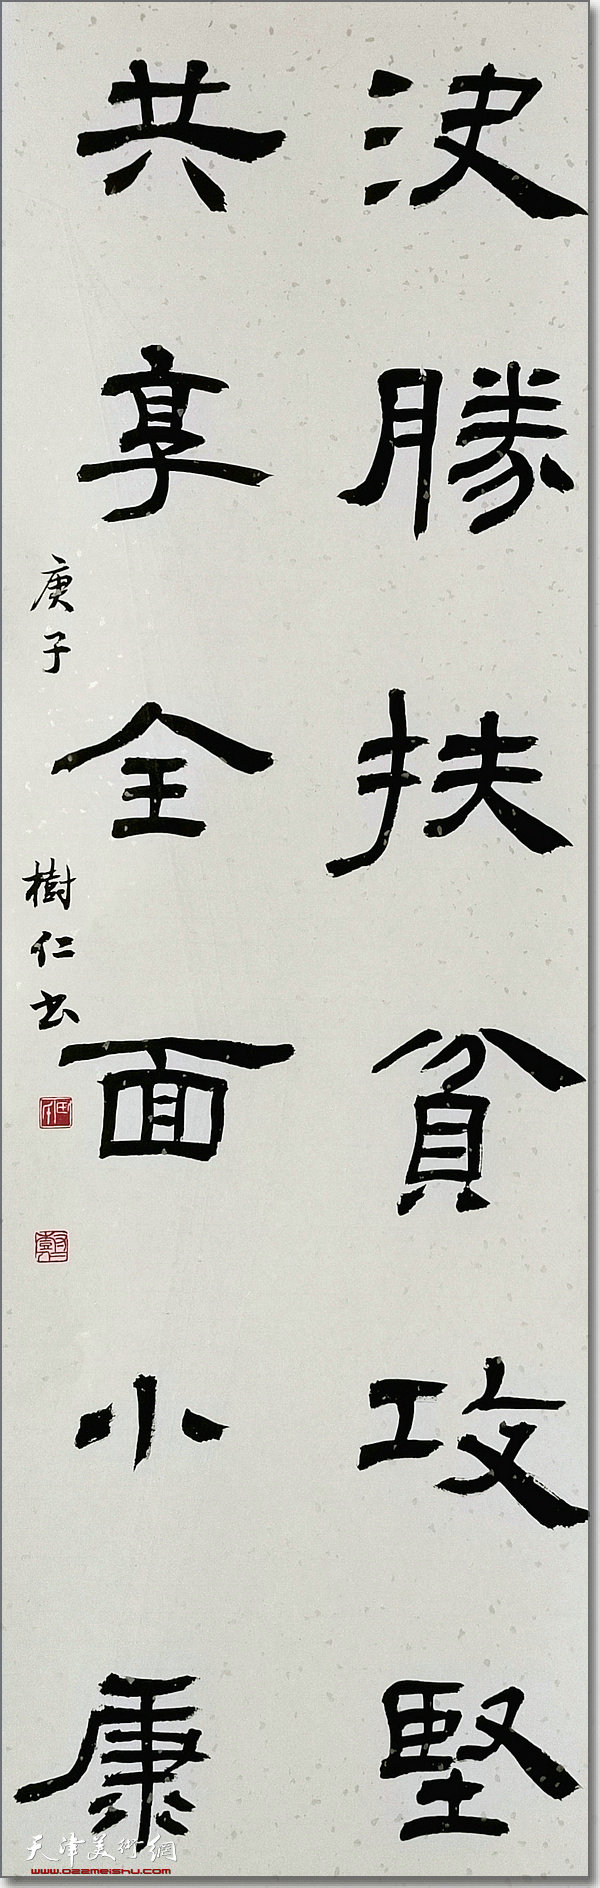 決勝扶貧攻堅
共享全面小康
庚子 樹仁书
天津美術網
www.022meishu.com